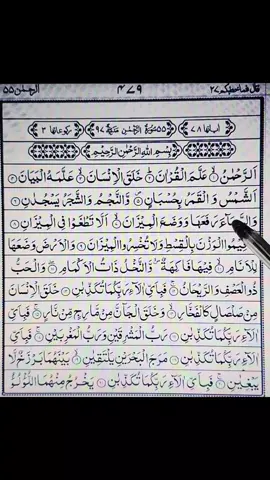 قال فما خطبکم ٢٧ ٤٧٩ الرحمٰن ٥٥
اٰیاتها ٧٨ ٥٥ سُوْرَةُ الرَّحْمٰنِ مَدَنِیَّةٌ ٩٧ رکوعاتها ٣
بِسْمِ اللّٰهِ الرَّحْمٰنِ الرَّحِیْمِ
اَلرَّحْمٰنُ ۙ عَلَّمَ الْقُرْاٰنَ ؕ خَلَقَ الْاِنْسَانَ ۙ عَلَّمَهُ الْبَیَانَ
اَلشَّمْسُ وَ الْقَمَرُ بِحُسْبَانٍ ۪ وَّ النَّجْمُ وَ الشَّجَرُ یَسْجُدٰنِ
وَ السَّمَآءَ رَفَعَهَا وَ وَضَعَ الْمِیْزَانَ ۙ اَلَّا تَطْغَوْا فِی الْمِیْزَانِ
وَ اَقِیْمُوا الْوَزْنَ بِالْقِسْطِ وَ لَا تُخْسِرُوا الْمِیْزَانَ وَ الْاَرْضَ وَضَعَهَا
لِلْاَنَامِ ۙ فِیْهَا فَاكِهَةٌ ۪ۙ وَّ النَّخْلُ ذَاتُ الْاَكْمَامِ ۖ وَ الْحَبُّ
ذُو الْعَصْفِ وَ الرَّیْحَانُ ۚ فَبِاَیِّ اٰلَآءِ رَبِّكُمَا تُكَذِّبٰنِ خَلَقَ الْاِنْسَانَ
مِنْ صَلْصَالٍ كَالْفَخَّارِ ۙ وَ خَلَقَ الْجَآنَّ مِنْ مَّارِجٍ مِّنْ نَّارٍ ۚ فَبِاَیِّ
اٰلَآءِ رَبِّكُمَا تُكَذِّبٰنِ رَبُّ الْمَشْرِقَیْنِ وَ رَبُّ الْمَغْرِبَیْنِ ۚ فَبِاَیِّ
اٰلَآءِ رَبِّكُمَا تُكَذِّبٰنِ مَرَجَ الْبَحْرَیْنِ یَلْتَقِیٰنِ ۙ بَیْنَهُمَا بَرْزَخٌ لَّا
یَبْغِیٰنِ ۚ فَبِاَیِّ اٰلَآءِ رَبِّكُمَا تُكَذِّبٰنِ یَخْرُجُ مِنْهُمَا اللُّؤْلُؤُ